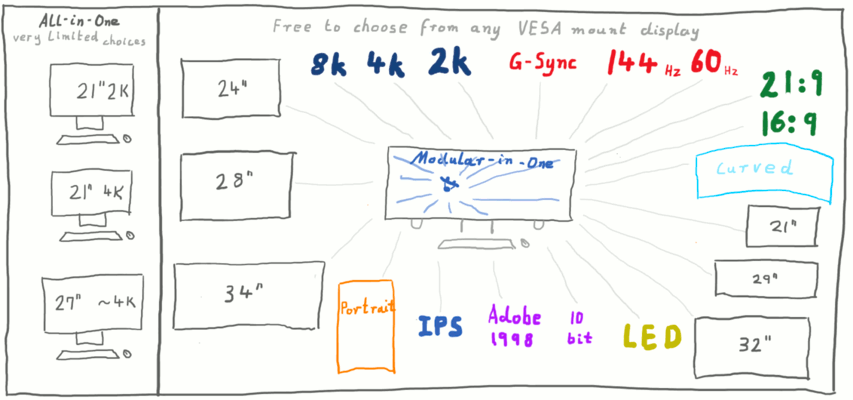 ALL-in-One
very Limited choices
21" 2K
21" 4K
27" ~4K
Free to choose from any VESA mount display
8k 4k 2k G-Sync 144 Hz 60 Hz
21:9
16:9
24"
28"
34"
Modular-in-One
Curved
21"
29"
32"
Portrait
IPS
Adobe
1998
10
bit
LED